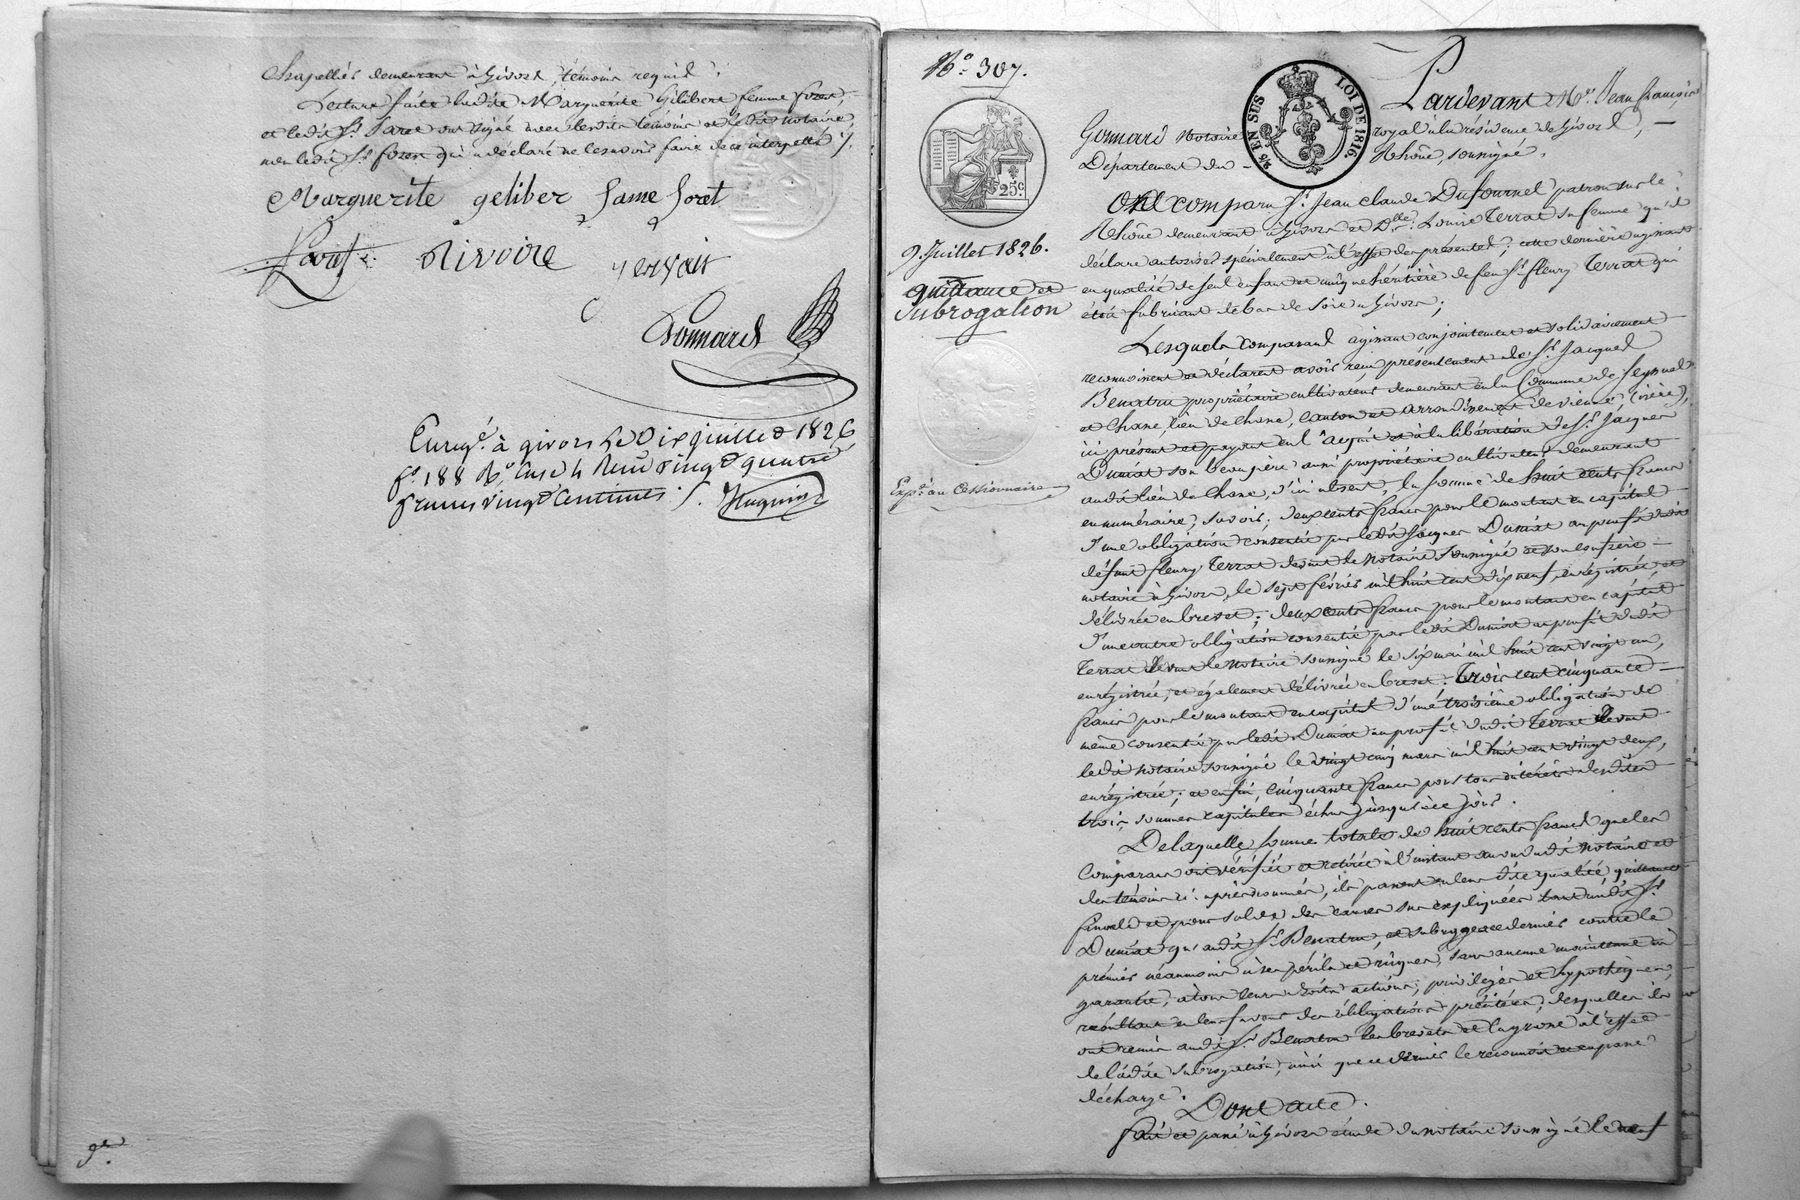 Chapelliés demeurant à Givors, témoins requis ;
Lecture faite ladite Marguerite Gilibert femme foret,
et ledit Sr. Paret ont signé avec lesdits témoins et ledit notaire,
non ledit Sr. foret qui a déclaré ne le savoir faire de ce interpellé ./.
Marguerite geliber fame foret
Rivoire gervais
Gonnard
Enregé. à givors le Dix juillet 1826,
fo. 188 Ro. Case 4 Reçu vingt quatre
francs vingt Centimes ./. Huguin
9e.
No. 307.
25c.
5/8 EN SUS
LOI DE 1816
9. Juillet 1826.
quittance et
Subrogation
Expé. au Cessionnaire
Pardevant Me. Jean françois
Gonnard Notaire royal à la résidence de Givors, —
Département du — Rhône, soussigné,
Ont comparu Sr. Jean Claude Dufournel patron sur le
Rhône demeurant à Givors et Dlle. Louise Terrat sa femme qu'il
déclare autoriser spécialement à l'effet des présentes ; cette dernière agissant
en qualité de seul enfant et unique héritière de feu Sr. fleury Terrat qui
était fabricant de bas de soie à Givors ;
Lesquels comparans agissant conjointement et solidairement
reconnoissent et déclarent avoir reçu présentement de Sr. Jacques
Benatru propriétaire cultivateur demeurant en la Commune de Seyssuel
et Chane, lieu de Chane, canton et arrondissement de vienne, (isère),
ici présent et payant en l'acquit et à la libération de Sr. Jacques
Dumat son beaupère aussi propriétaire cultivateur demeurant
audit lieu de Chane, d'ici absent, la somme de huit cents francs
en numéraire, savoir ; deux cents francs pour le montant en capital
d'une obligation consentie par ledit Jacques Dumat au profit dudit
défunt fleury Terrat devant le notaire soussigné et son confrère
notaire à Givors, le sept février mil huit cent dix neuf, enregistrée, et
délivrée en brevet ; deux cents francs pour le montant en capital
d'une autre obligation consentie par ledit Dumat au profit dudit
Terrat devant le notaire soussigné le six mai mil huit cent vingt un,
enregistrée, et également délivrée en brevet ; trois cent cinquante —
francs pour le montant en capital d'une troisième obligation de
même consentie par ledit Dumat au profit dudit Terrat devant
ledit notaire soussigné le vingt cinq mars mil huit cent vingt deux,
enregistrée ; et enfin, cinquante francs pour tous intérêts desdites
trois sommes capitales échus jusqu'à ce jour.
De laquelle somme totale de huit cents francs que les
comparans ont vérifiée et retirée à l'instant au vu dudit notaire et
des témoins ci-après nommés, ils passent en leur dite qualité quittance
finale et pour solde des causes sus expliquées tant audit Sr.
Dumat qu'audit Sr. Benatru, et subrogent ce dernier contre le
premier néanmoins à ses périls et risques, sans aucune maintenue ni
garantie, à tous leurs droits actions, privilèges et hypothèques,
résultant en leur faveur des obligations précitées, desquelles ils
ont remis audit Sr. Benatru les brevets et la grosse à l'effet
de ladite subrogation, ainsi que ce dernier le reconnoit et en passe
décharge.
Dont acte.
fait et passé à Givors étude du notaire soussigné le neuf